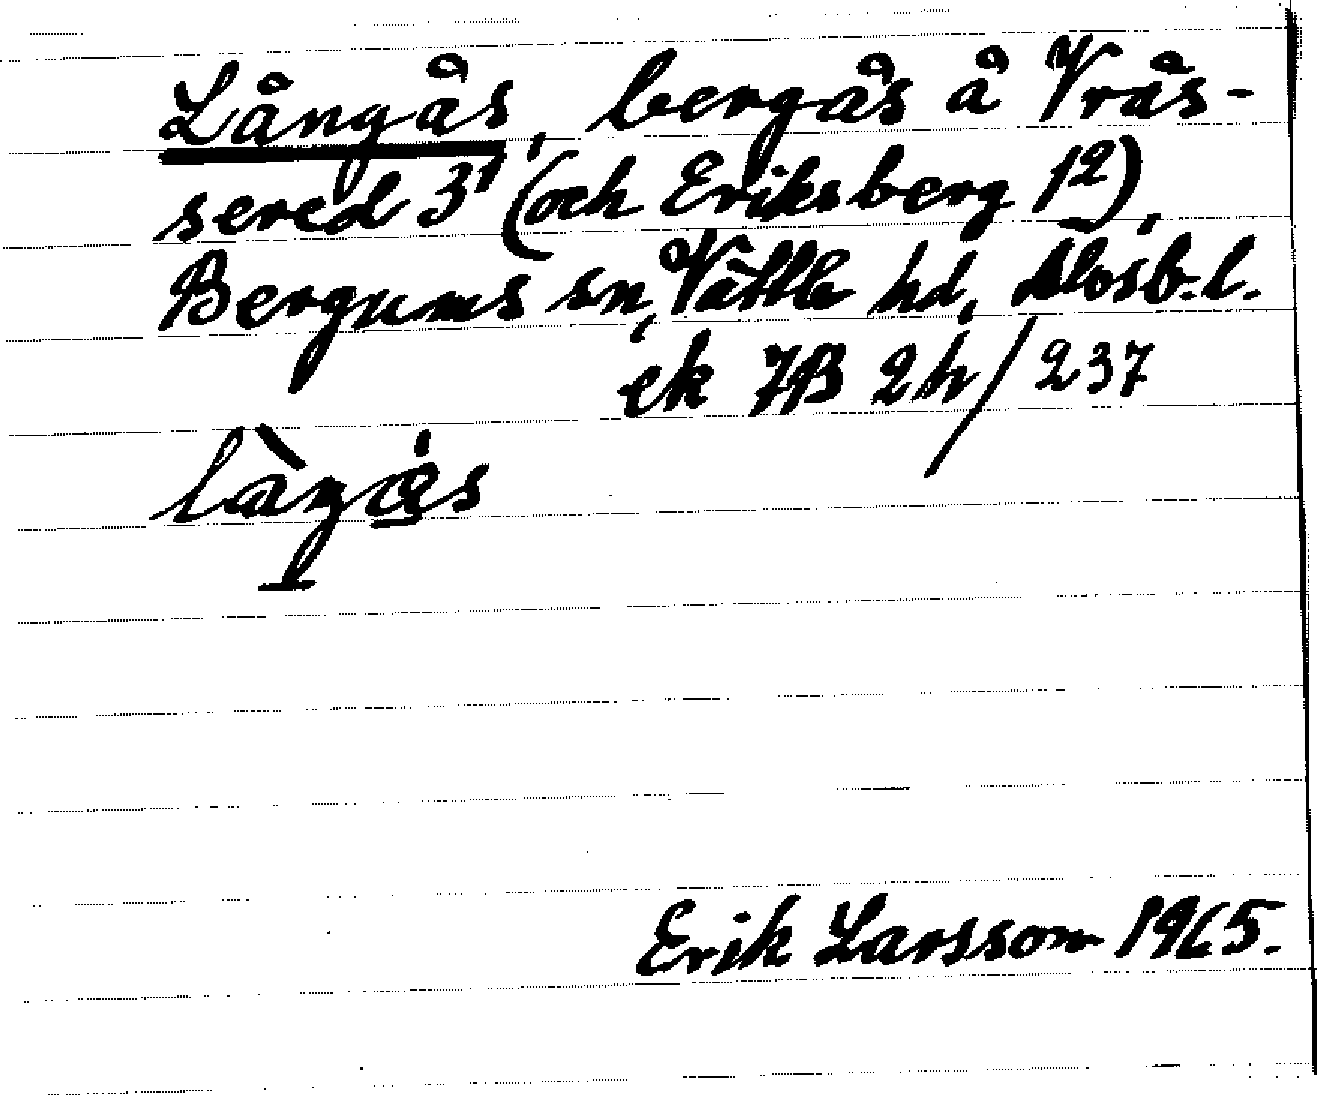 Långås, bergås å Vrås-
sered 3¹ (och Eriksberg 1²),
Bergums sn, Vättle hd, Älvsb. l.
ek 7B 2h/237
Erik Larsson 1965.